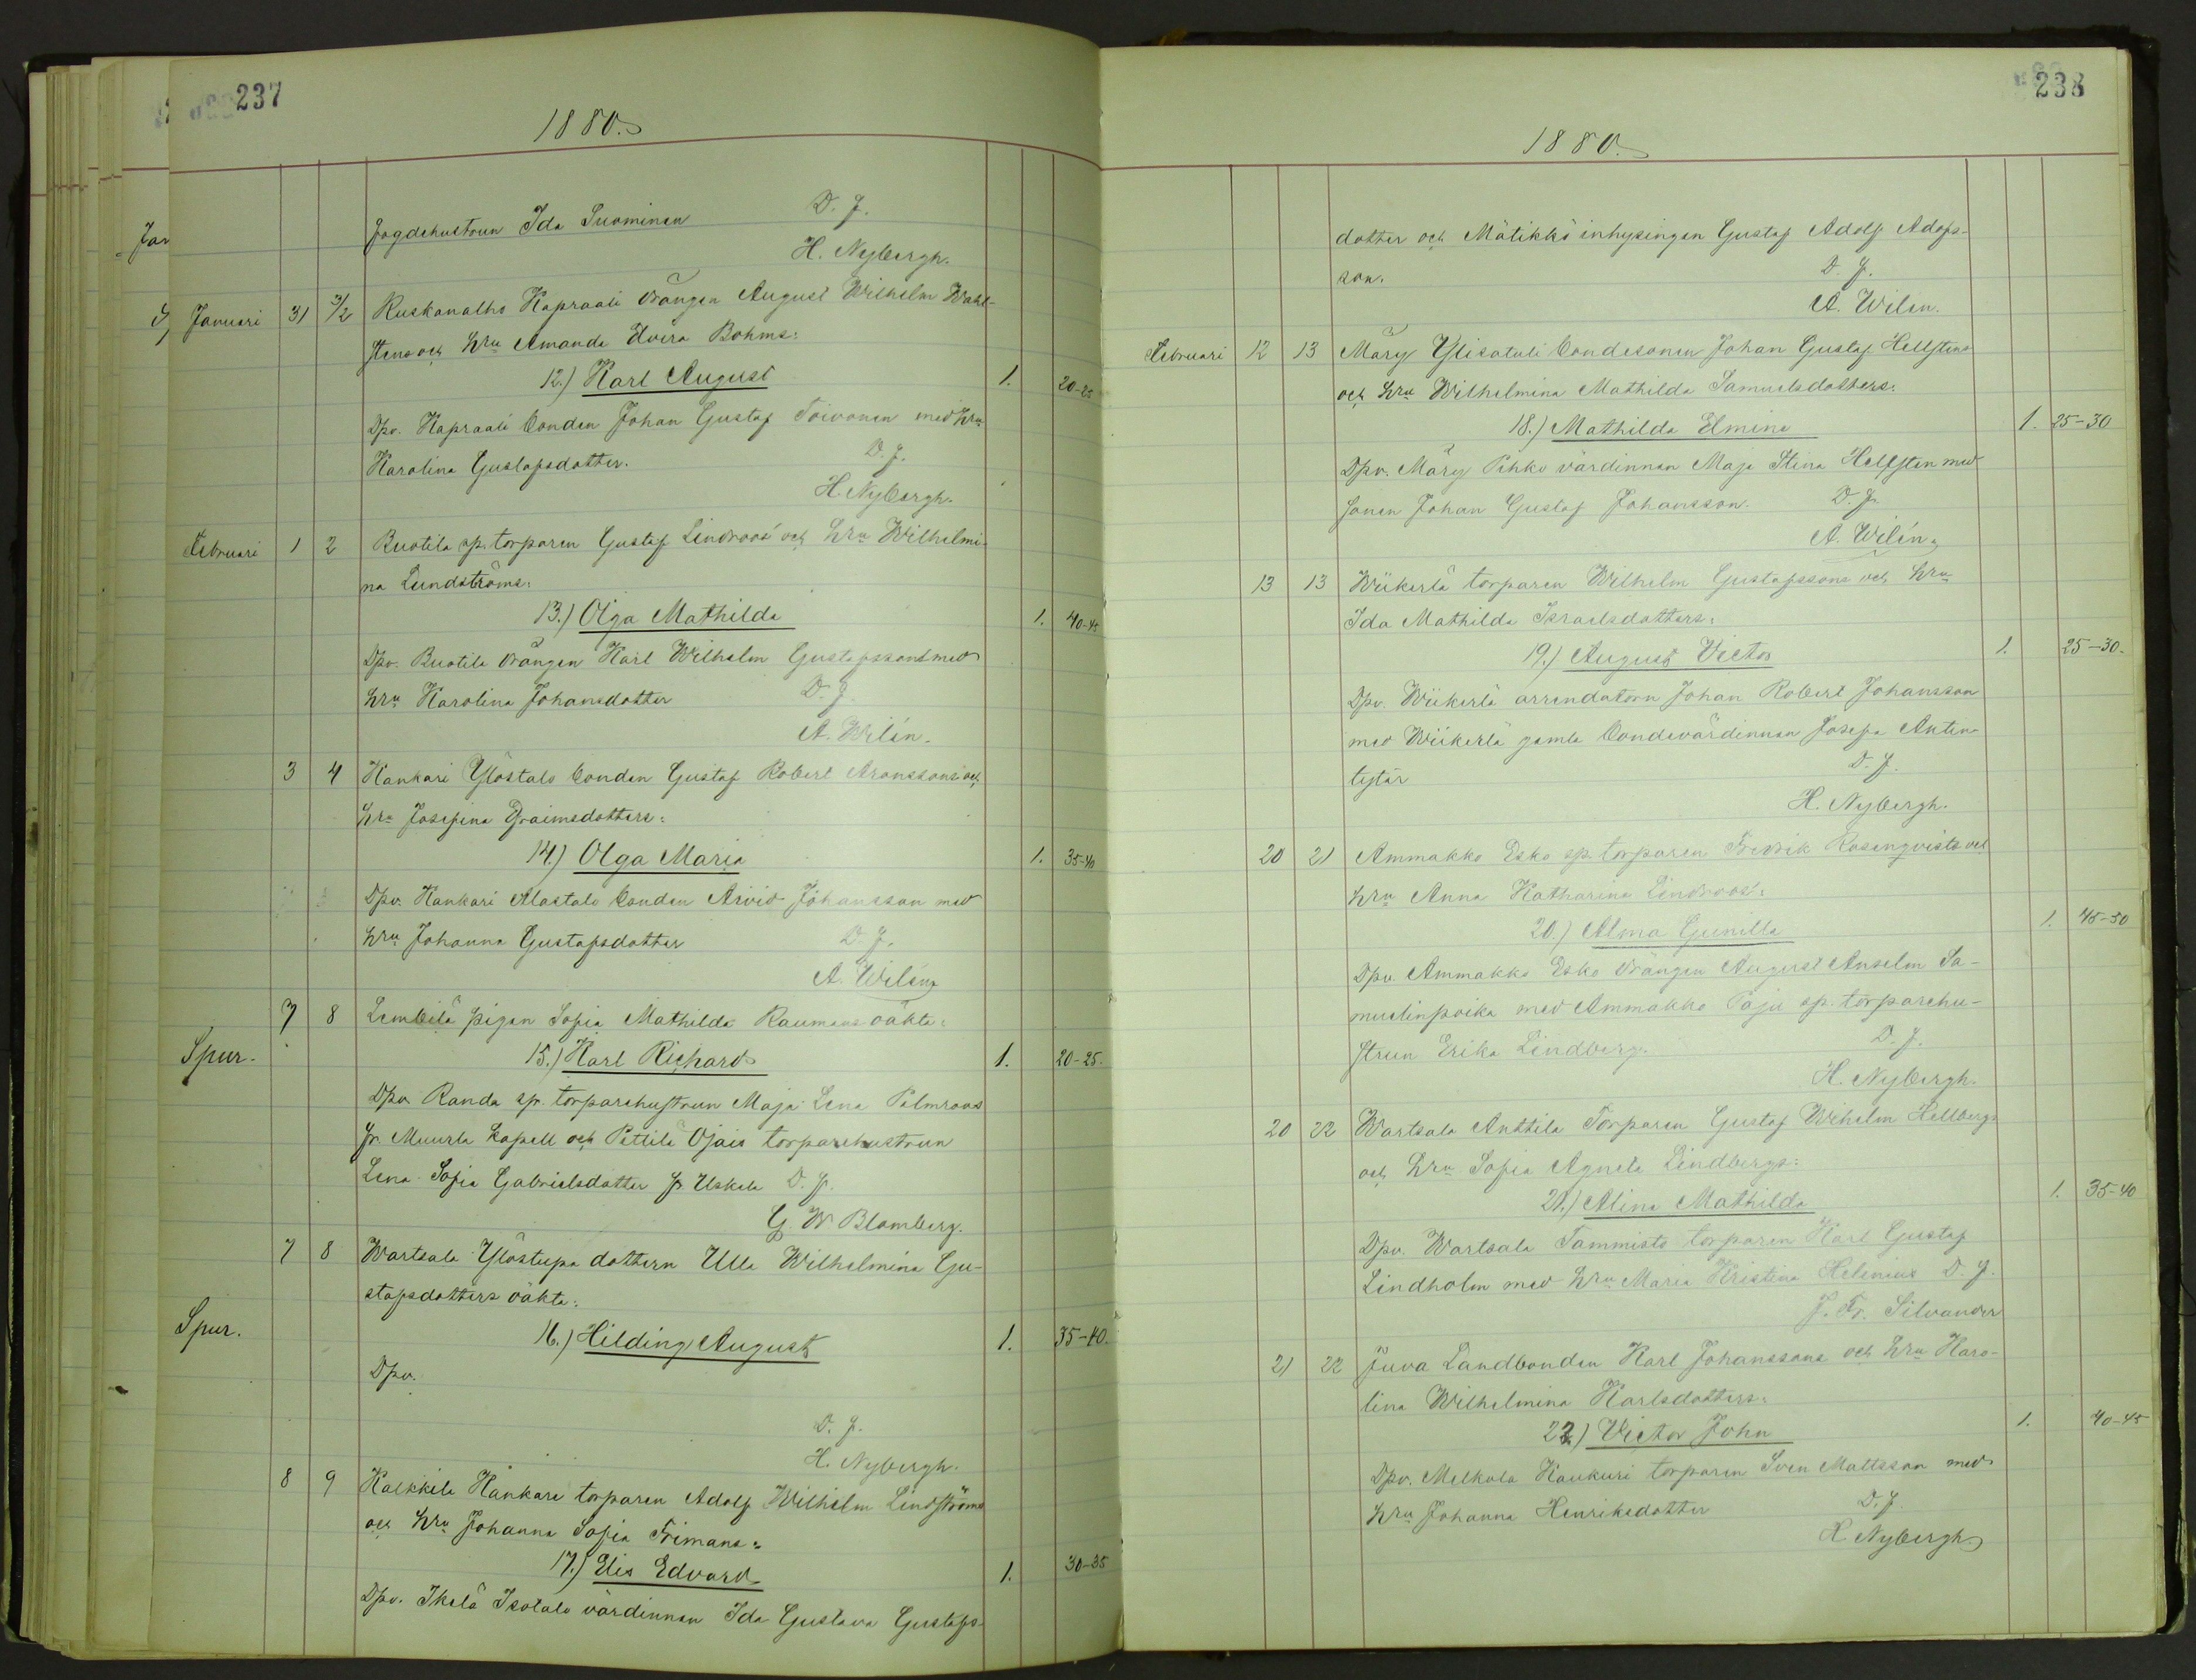 237
1880.
Jan
Fogdehustrun Ida Suominen D. f.
H. Nybergh.
Januari 31 3/2 Ruskanalho Kapraali drängen August Wilhelm Wahl-
stens och hru Amanda Elvira Bohms:
12.) Karl August 1. 20-25
Dpv. Kapraali bonden Johan Gustaf Toivonen med hru
Karolina Gustafsdotter. D. f.
H. Nybergh.
Februari 1 2 Buotila sp. torparen Gustaf Lindroos' och hru Wilhelmi-
na Lundströms:
13.) Olga Mathilda 1. 40-45
Dpv. Buotila drängen Karl Wilhelm Gustafsson med
hru Karolina Johansdotter D. f.
A. Wilén.
3 4 Kankari Ylöstalo bonden Gustaf Robert Aronssons och
hru Josefina Efraimsdotters:
14.) Olga Maria 1. 35-40
Dpv. Kankari Alastalo bonden Arvid Johansson med
hru Johanna Gustafsdotter D. f.
A. Wilén
7 8 Lembilä pigan Sofia Mathilda Raumans oäkta:
Spur. 15.) Karl Richard 1. 20-25.
Dpv. Randa sp. torparehustrun Maja Lena Palmroos
fr. Muurla kapell och Pettilä Ojais torparehustrun
Lena Sofia Gabrielsdotter fr. Uskela D. f.
G. W. Blomberg.
7 8 Wartsala Ylöstupa dottern Ulla Wilhelmina Gu-
stafsdotters oäkta:
Spur. 16.) Hilding August 1. 35-40.
Dpv.
D. f.
H. Nybergh.
8 9 Kalkkila Kankare torparen Adolf Wilhelm Lindströms
och hru Johanna Sofia Frimans:
17.) Elis Edvard 1. 30-35
Dpv. Ikelä Isotalo värdinnan Ida Gustava Gustafs-
238
1880.
dotter och Mätikkö inhysingen Gustaf Adolf Adofs-
son. D. f.
A. Wilen.
Februari 12 13 Märy Ylisatuli bondesonen Johan Gustaf Hellstens
och hru Wilhelmina Mathilda Samuelsdotters:
18.) Mathilda Elmina 1. 25-30
Dpv. Märy Pihko värdinnan Maja Stina Hellsten med
sonen Johan Gustaf Johansson. D. f.
A. Wilén.
13 13 Wiikerlä torparen Wilhelm Gustafssons och hru
Ida Mathilda Israelsdotters:
19.) August Victor 1. 25-30.
Dpv. Wiikerlä arrendatorn Johan Robert Johansson
med Wiikerlä gamla bondevärdinnan Josefa Antin
tytär D. f.
H. Nybergh.
20 21 Ammakko Esko sp. torparen Fredrik Rosenqvists och
hru Anna Katharina Lindroos':
20.) Alma Gunilla 1. 45-50
Dpv. Ammakko Esko drängen August Anselm Sa-
muelinpoika med Ammakko Paju sp. torparehu-
strun Erika Lindberg. D. f.
H. Nybergh.
20 22 Wartsala Anttila Torparen Gustaf Wihelm Hellbergs
och hru Sofia Agneta Lindbergs:
21.) Alina Mathilda 1. 35-40
Dpv. Wartsala Tammisto torparen Karl Gustaf
Lindholm med hru Maria Kristina Helenius D. f.
F. Fr. Silvander
21 22 Juva Landbonden Karl Johanssons och hru Karo-
lina Wilhelmina Karlsdotters:
22.) Victor John 1. 40-45
Dpv. Melkola Kaukuri torparen Sven Mattsson med
hru Johanna Henriksdotter D. f.
H. Nybergh.